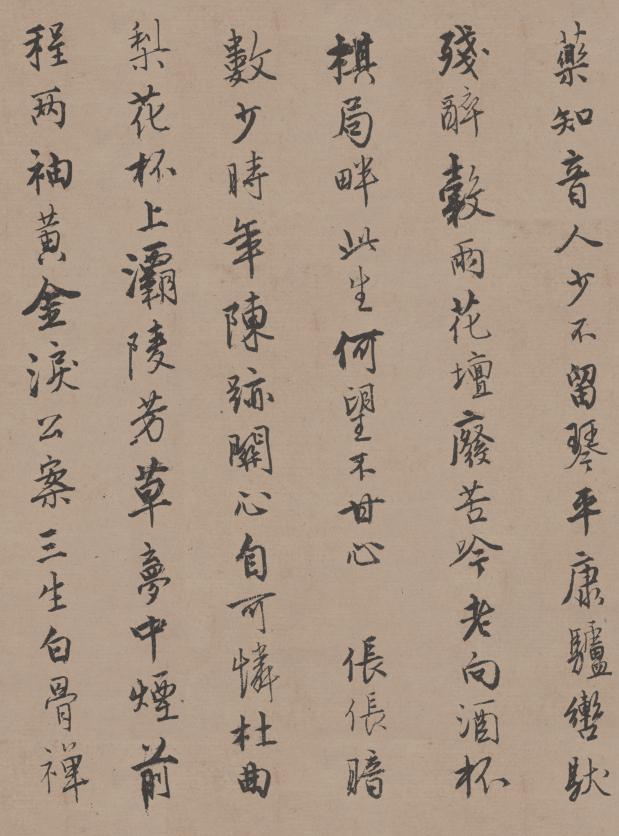 藥知音人少不留琴平康驢轡馱
殘醉縠雨花壇廢苦吟老向酒杯
棋局畔此生何望不甘心　悵悵暗
數少時年陳跡關心自可憐杜曲
梨花杯上灞陵芳草夢中煙前
程两袖黃金淚公案三生白骨禪